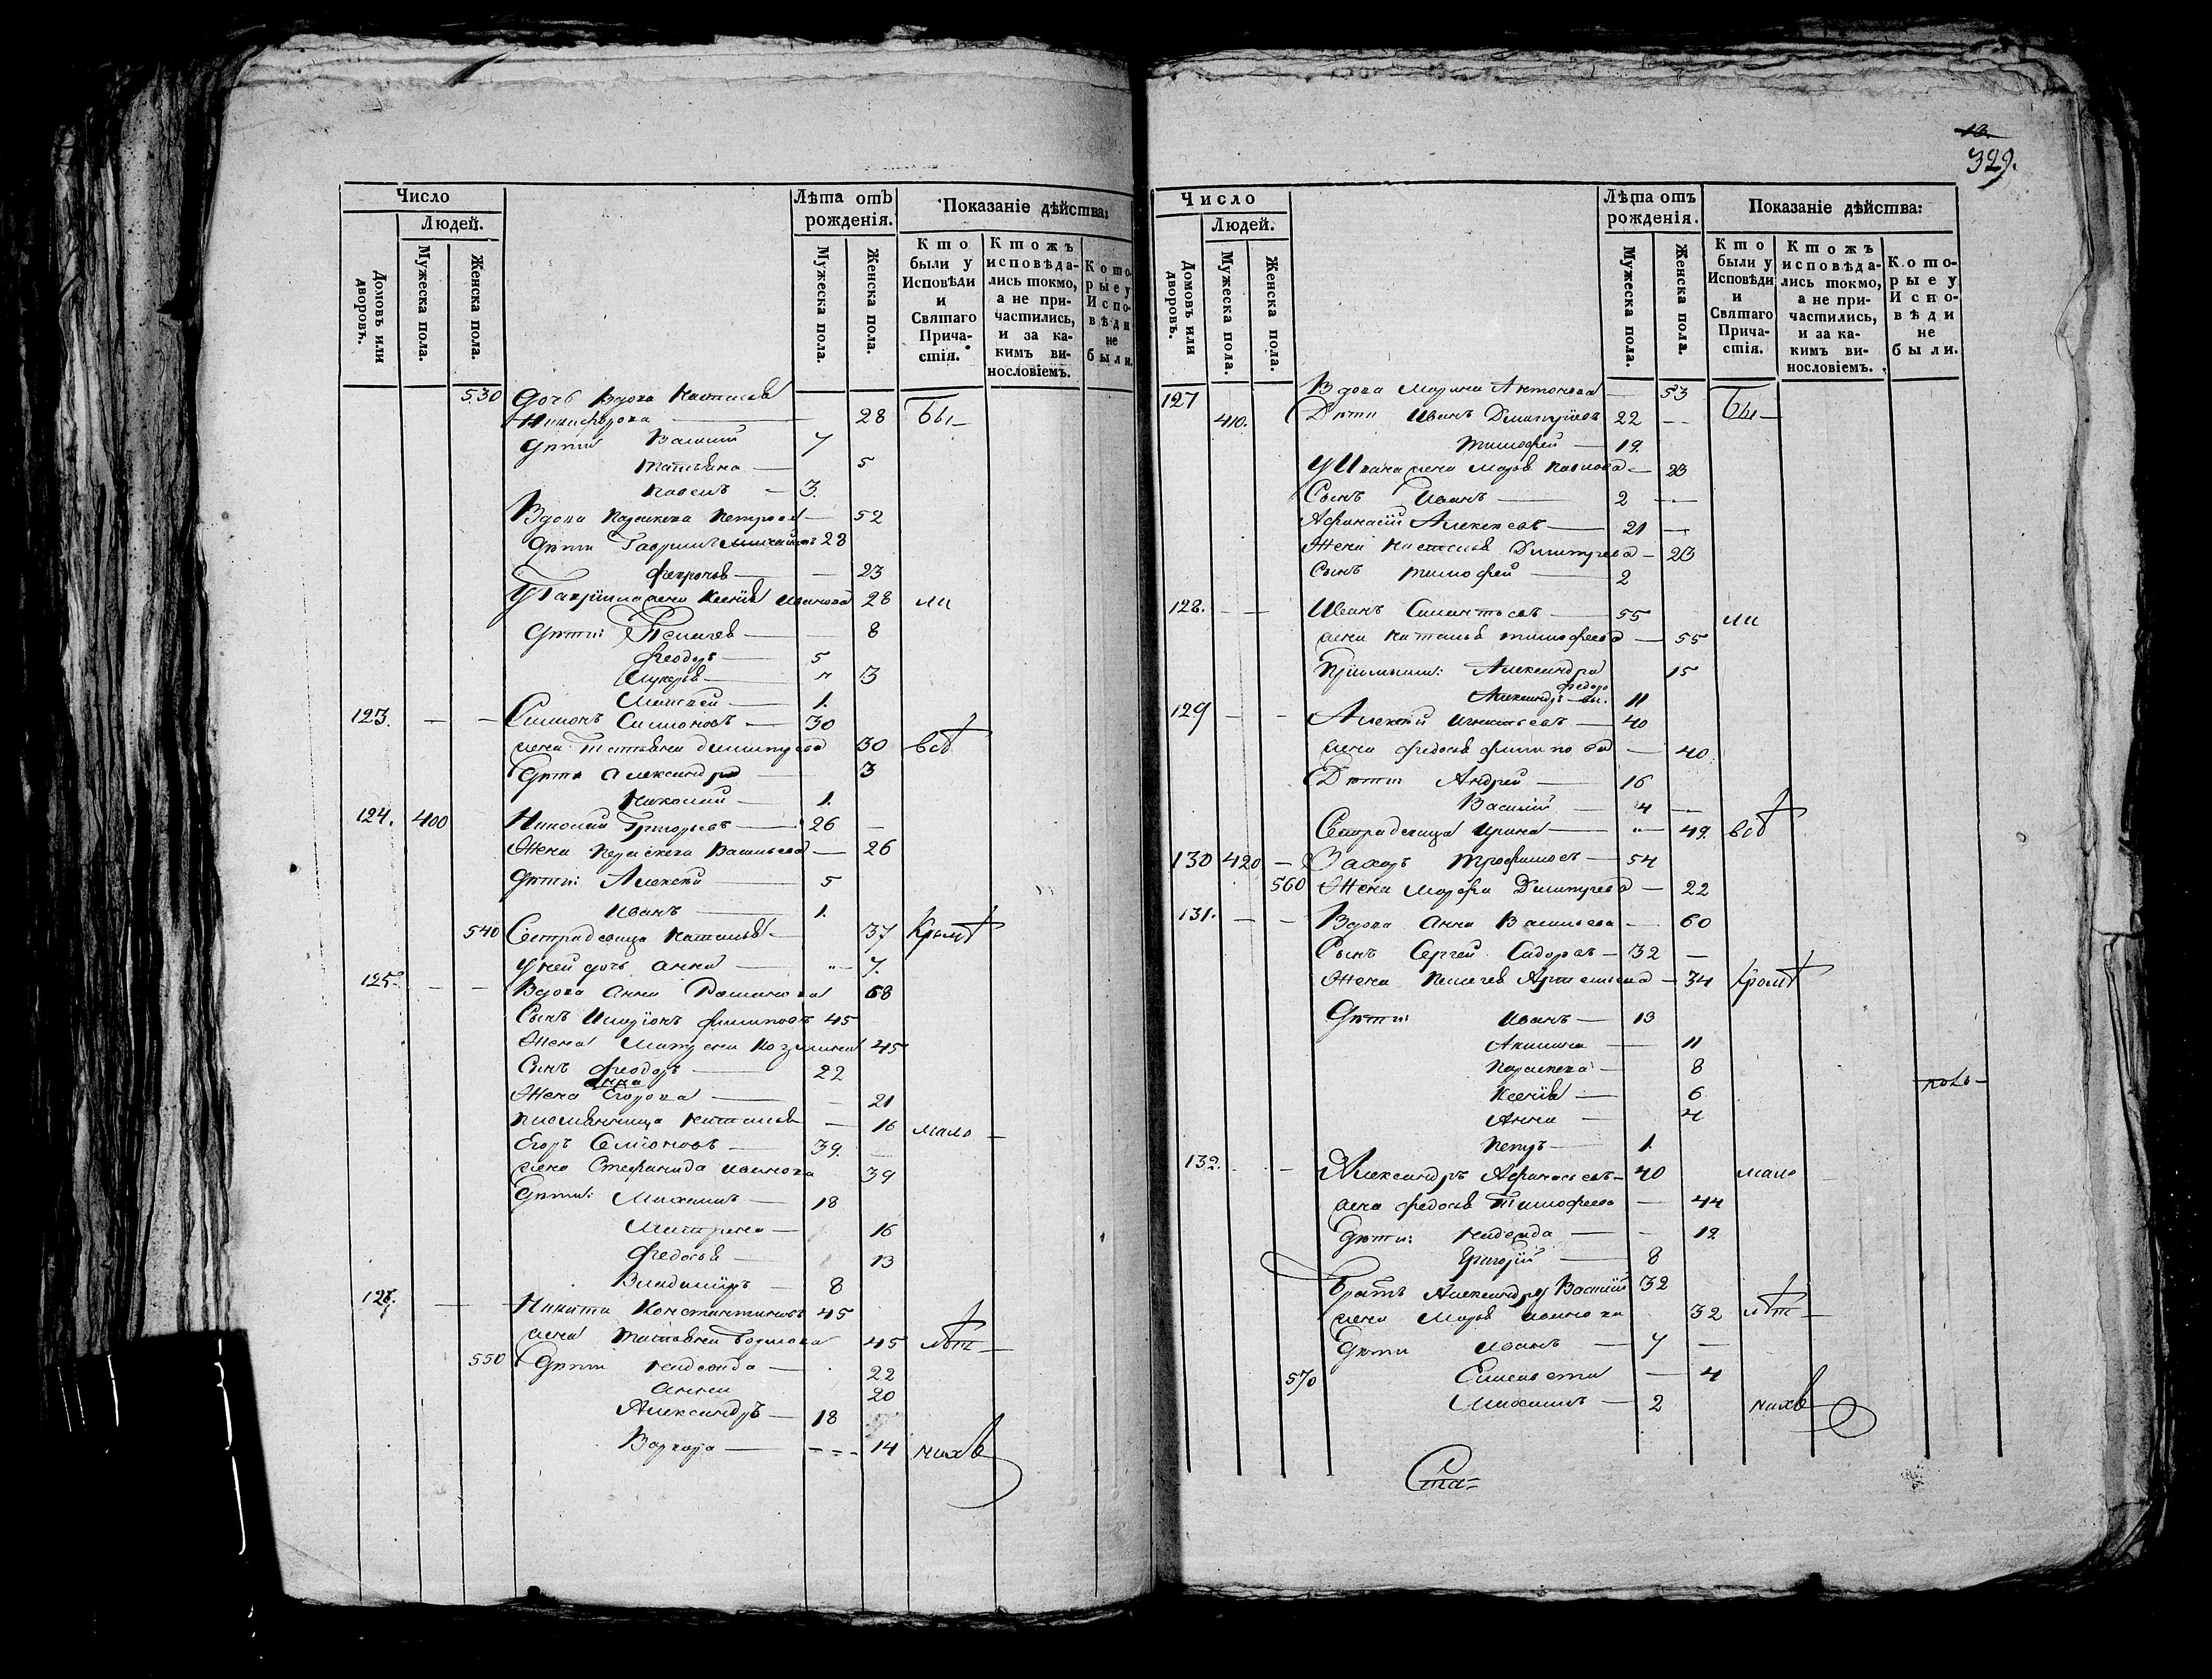 Число
Людей.
Домовъ или дворовъ.
Мужеска пола.
Женска пола.
Лѣта отъ рожденія.
Мужеска пола.
Женска пола.
Показаніе дѣйства:
Кто были у Исповѣди и Святаго Причастія.
Ктожъ исповѣдались токмо, а не причастились, и за какимъ винословіемъ.
Которые у Исповѣди не были.
530 Дочь Вдова Наталья
Никифорова — 28 Бы-
Дѣти Василій 7
Татьяна — 5
Павелъ — 3.
Вдова Параскева Петрова — 52
Дѣти Гаврилъ 28
23
У Гаврила жена Ксенія Иванова 28 ли
Дѣти: Пелагея — 8
Феодоръ — 5
3
Алексѣй — 1.
123. — — Симіонъ Симіоновъ — 30
жена Татьяна Димитріева 30 всѣ
Дѣти Александра — 3
Николай — 1.
124. 400 Николай Григорьевъ — 26
Жена Параскева Васильева — 26
Дѣти: Алексѣй — 5
Иванъ — 1.
540 Сестра девица Наталья — 37 Кромѣ
У ней дочь Анна — 7.
125. — — Вдова Анна Романова 68
Сынъ Иларіонъ Филиповъ 45
Жена Матрена Козьмина 45
Сынъ Феодоръ — 22
Анна
Жена Егорова — 21
Племянница Наталья — 16 мало —
Егоръ Семіоновъ — 39.
жена Степанида Иванова 39
Дѣти: Михаилъ — 18
Матрена — 16
Федосья — 13
Владиміръ — 8
Никита Константиновъ 45
жена Татьяна 45 лѣт-
550 Дѣти Надежда — 22
Анна 20
Александръ — 18
Варвара — 14 нихъ
329.
Число
Людей.
Домовъ или дворовъ.
Мужеска пола.
Женска пола.
Лѣта отъ рожденія.
Мужеска пола.
Женска пола.
Показаніе дѣйства:
Кто были у Исповѣди и Святаго Причастія.
Ктожъ исповѣдались токмо, а не причастились, и за какимъ винословіемъ.
Которые у Исповѣди не были.
127 Вдова Марина Антонова — 53
410. Дѣти Иванъ Димитріевъ 22 Бы-
Тимофей — 19.
У Ивана жена Марья Павлова — 23
Сынъ Иванъ — 2
Афанасій Алексѣевъ — 21
Жена Наталья Димитріева — 23
Сынъ Тимофей — 2
128. — — Иванъ — 55 ли
жена Наталья Тимофеева — 55
Александра 15
Александръ 11
129 — — Алексѣй Игнатьевъ — 40
жена Федосья Филипова — 40
Дѣти: Андрей — 16
Василій — 4
Сестра девица Ирина — 49. всѣ
130 420 — Захаръ Трофимовъ — 54
560 Жена Марфа Димитріева — 22
131. — — Вдова Анна Васильева — 60
Сынъ Сергей Сидоровъ — 32
Жена Пелагея Артемьева — 34 Кромѣ
Дѣти: Иванъ — 13
Акилина — 11
Параскева — 8
Ксенія — 6
Анна — 4
Петръ — 1.
132. — Александръ Афанасьевъ — 40 мало
жена Федосья Тимофеева — 44
Дѣти: Надежда — 12
Григорій — 8
Братъ Александра Василій 32
жена Марья Иванова 32 лѣт-
Дѣти Иванъ — 7
570 Елисавета — 4
Михаилъ — 2 нихъ
Ста-